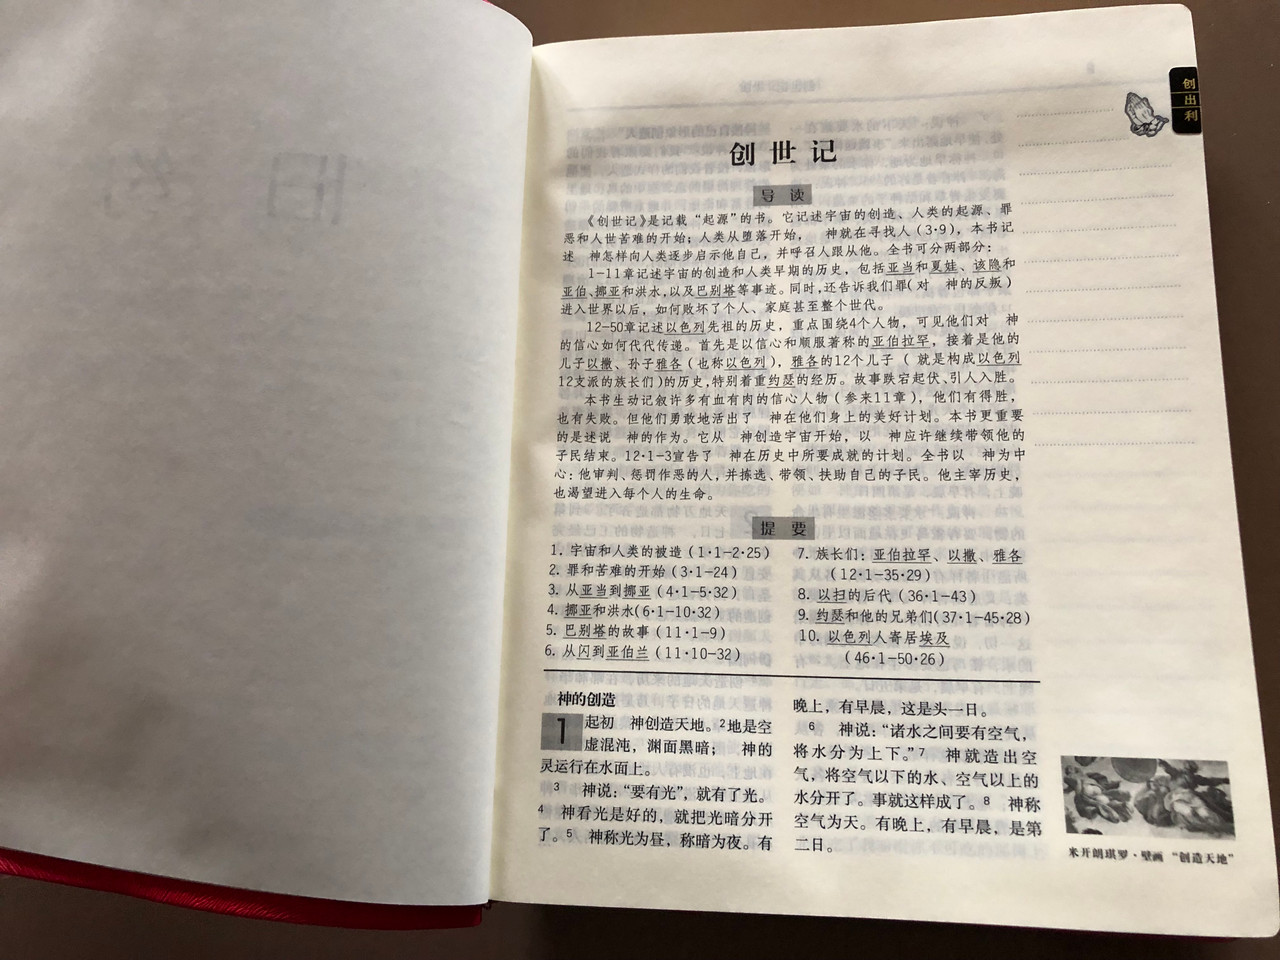 创
出
利
创世记
导 读
《创世记》是记载“起源”的书。它记述宇宙的创造、人类的起源、罪
恶和人世苦难的开始；人类从堕落开始，　神就在寻找人（3·9），本书记
述　神怎样向人类逐步启示他自己，并呼召人跟从他。全书可分两部分：
1-11章记述宇宙的创造和人类早期的历史，包括亚当和夏娃、该隐和
亚伯、挪亚和洪水，以及巴别塔等事迹。同时，还告诉我们罪（对　神的反叛）
进入世界以后，如何败坏了个人、家庭甚至整个世代。
12-50章记述以色列先祖的历史，重点围绕4个人物，可见他们对　神
的信心如何代代传递。首先是以信心和顺服著称的亚伯拉罕，接着是他的
儿子以撒、孙子雅各（也称以色列），雅各的12个儿子（就是构成以色列
12支派的族长们）的历史，特别着重约瑟的经历。故事跌宕起伏、引人入胜。
本书生动记叙许多有血有肉的信心人物（参来11章），他们有得胜，
也有失败。但他们勇敢地活出了　神在他们身上的美好计划。本书更重要
的是述说　神的作为。它从　神创造宇宙开始，以　神应许继续带领他的
子民结束。12·1-3宣告了　神在历史中所要成就的计划。全书以　神为中
心：他审判、惩罚作恶的人，并拣选、带领、扶助自己的子民。他主宰历史，
也渴望进入每个人的生命。
提 要
1. 宇宙和人类的被造（1·1-2·25）
2. 罪和苦难的开始（3·1-24）
3. 从亚当到挪亚（4·1-5·32）
4. 挪亚和洪水（6·1-10·32）
5. 巴别塔的故事（11·1-9）
6. 从闪到亚伯兰（11·10-32）
7. 族长们：亚伯拉罕、以撒、雅各
（12·1-35·29）
8. 以扫的后代（36·1-43）
9. 约瑟和他的兄弟们（37·1-45·28）
10. 以色列人寄居埃及
（46·1-50·26）
神的创造
1 起初　神创造天地。2地是空
虚混沌，渊面黑暗；　神的
灵运行在水面上。
3　神说：“要有光”，就有了光。
4　神看光是好的，就把光暗分开
了。5　神称光为昼，称暗为夜。有
晚上，有早晨，这是头一日。
6　神说：“诸水之间要有空气，
将水分为上下。”7　神就造出空
气，将空气以下的水、空气以上的
水分开了。事就这样成了。8　神称
空气为天。有晚上，有早晨，是第
二日。
米开朗琪罗·壁画“创造天地”